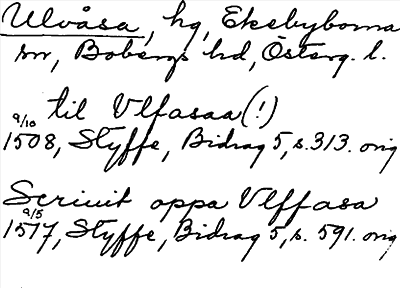 Ulvåsa, hg, Ekebyborna
sn, Bobergs hd, Österg. l.
til Vlfasaa (!)
9/10
1508, Styffe, Bidrag 5, s. 313. orig
Scriuit oppa Vlffasa
9/5
1517, Styffe, Bidrag 5, s. 591. orig